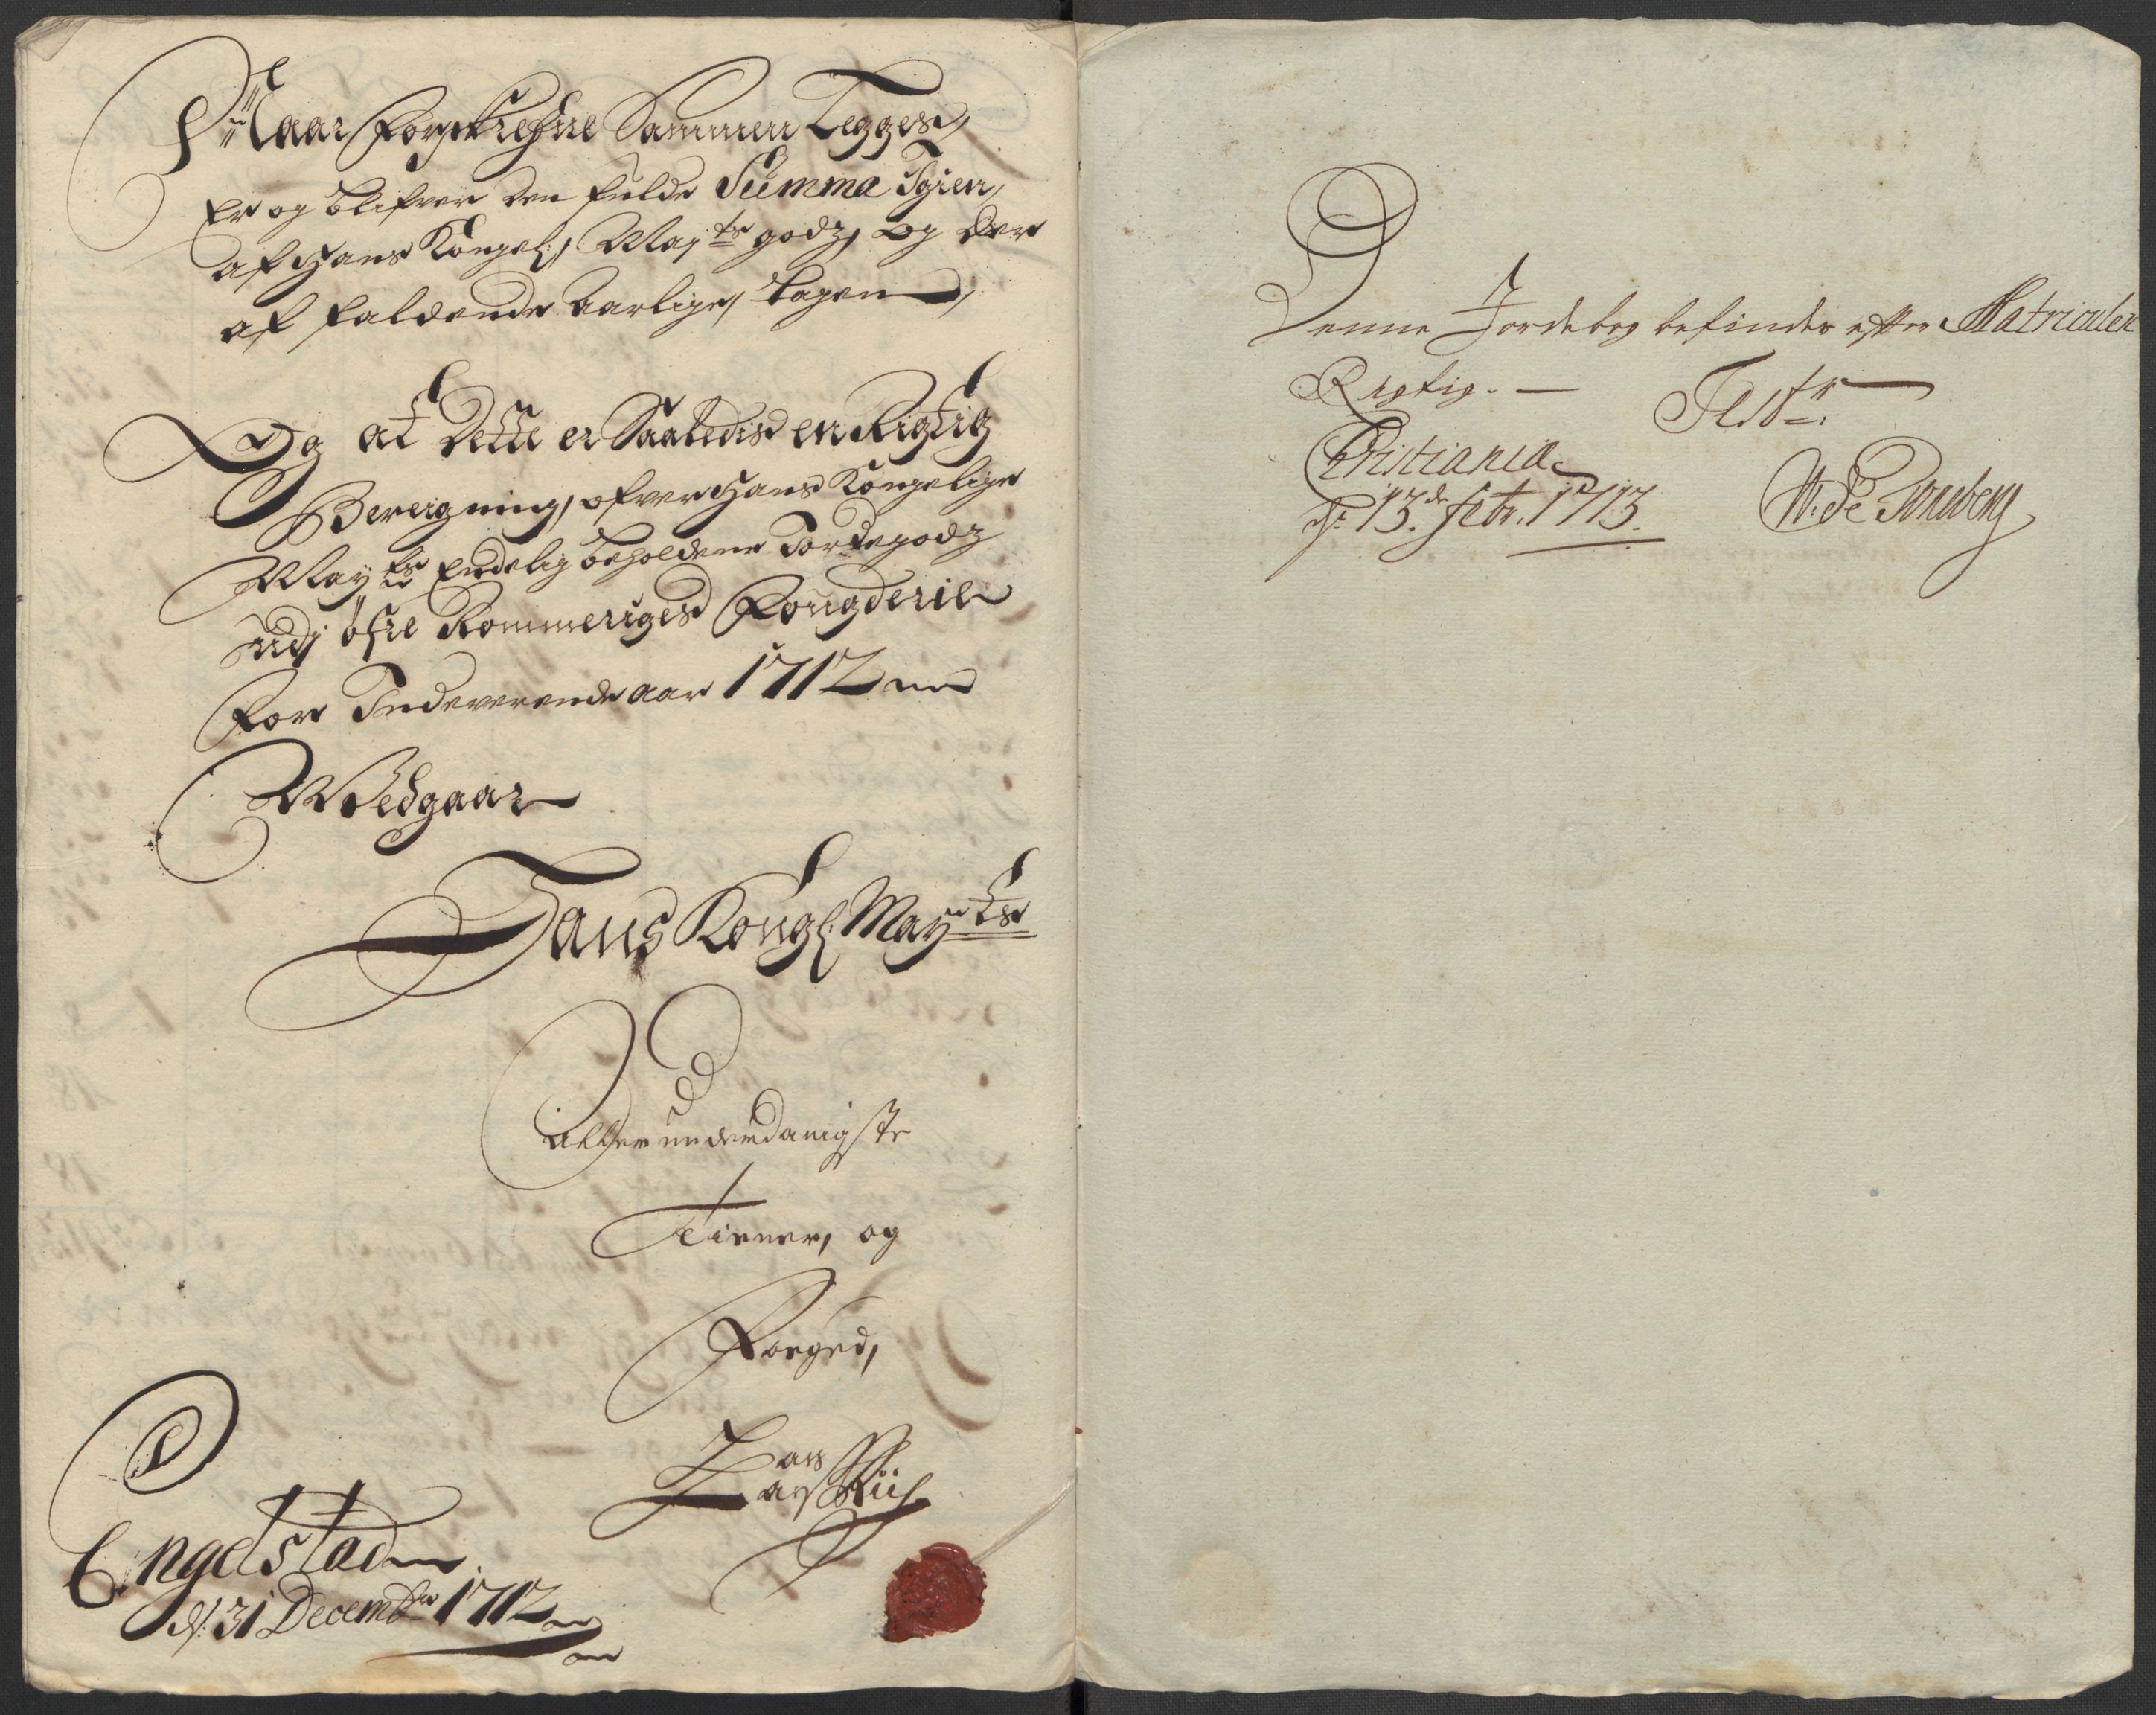 Naar forskrefne Sammen Legges,
Er og blifver den fulde Summa Igien,
af Hans Kongel: May:ts godz, og der
af faldende aarlige, tagen,
Og at Dette er Saaledis en Rigtig
Bereigning, ofver Hans Kongelige
May:ts Endelig beholdene Jordegodz
udj øfre Rommeriges Fougderie
for Indeverende aar 1712
Vedgaar
Hans Kongl: May:ts
aller underdanigste
Tiener, og
Foeged,
Engelstad
d: 31 Decembr 1712
Denne Jordebog befindes efter Matriculen
Rigtig. Test:
Christiania
d: 13de febr. 1713.